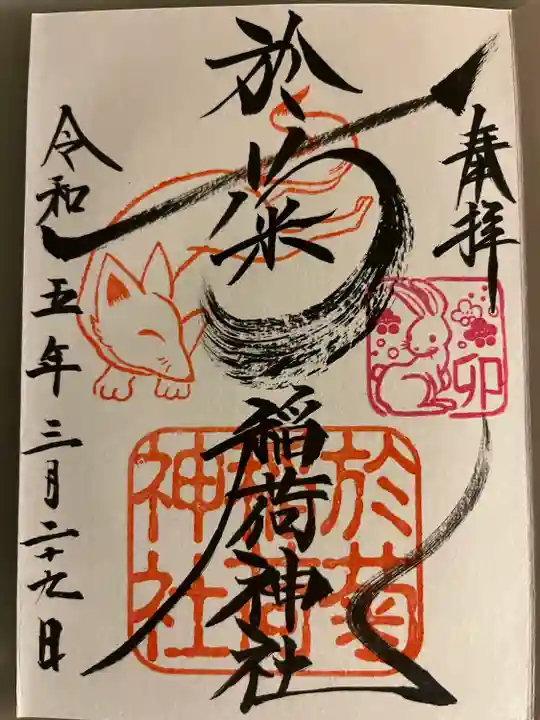 奉拝
卯
於菊稲荷神社
於菊
稲荷
神社
令和五年三月二十九日